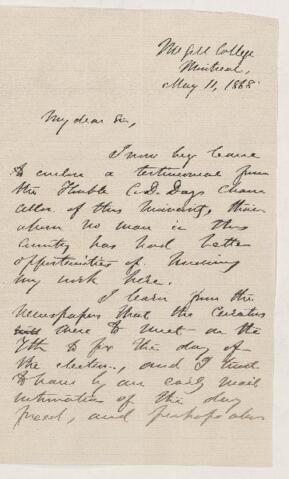 McGill College
Montreal,
May 11, 1868
My dear Sir,
I now beg leave
to enclose a testimonial from
the Honble C.D. Day, Chan
cellor of this University, than
whom no man in this
country has had better
opportunities of knowing
my work here.
I learn from the
newspapers that the Curators
were to meet on the
7th to fix the day of
the election, and I trust
to have by an early mail
intimation of the day
fixed, and perhaps also